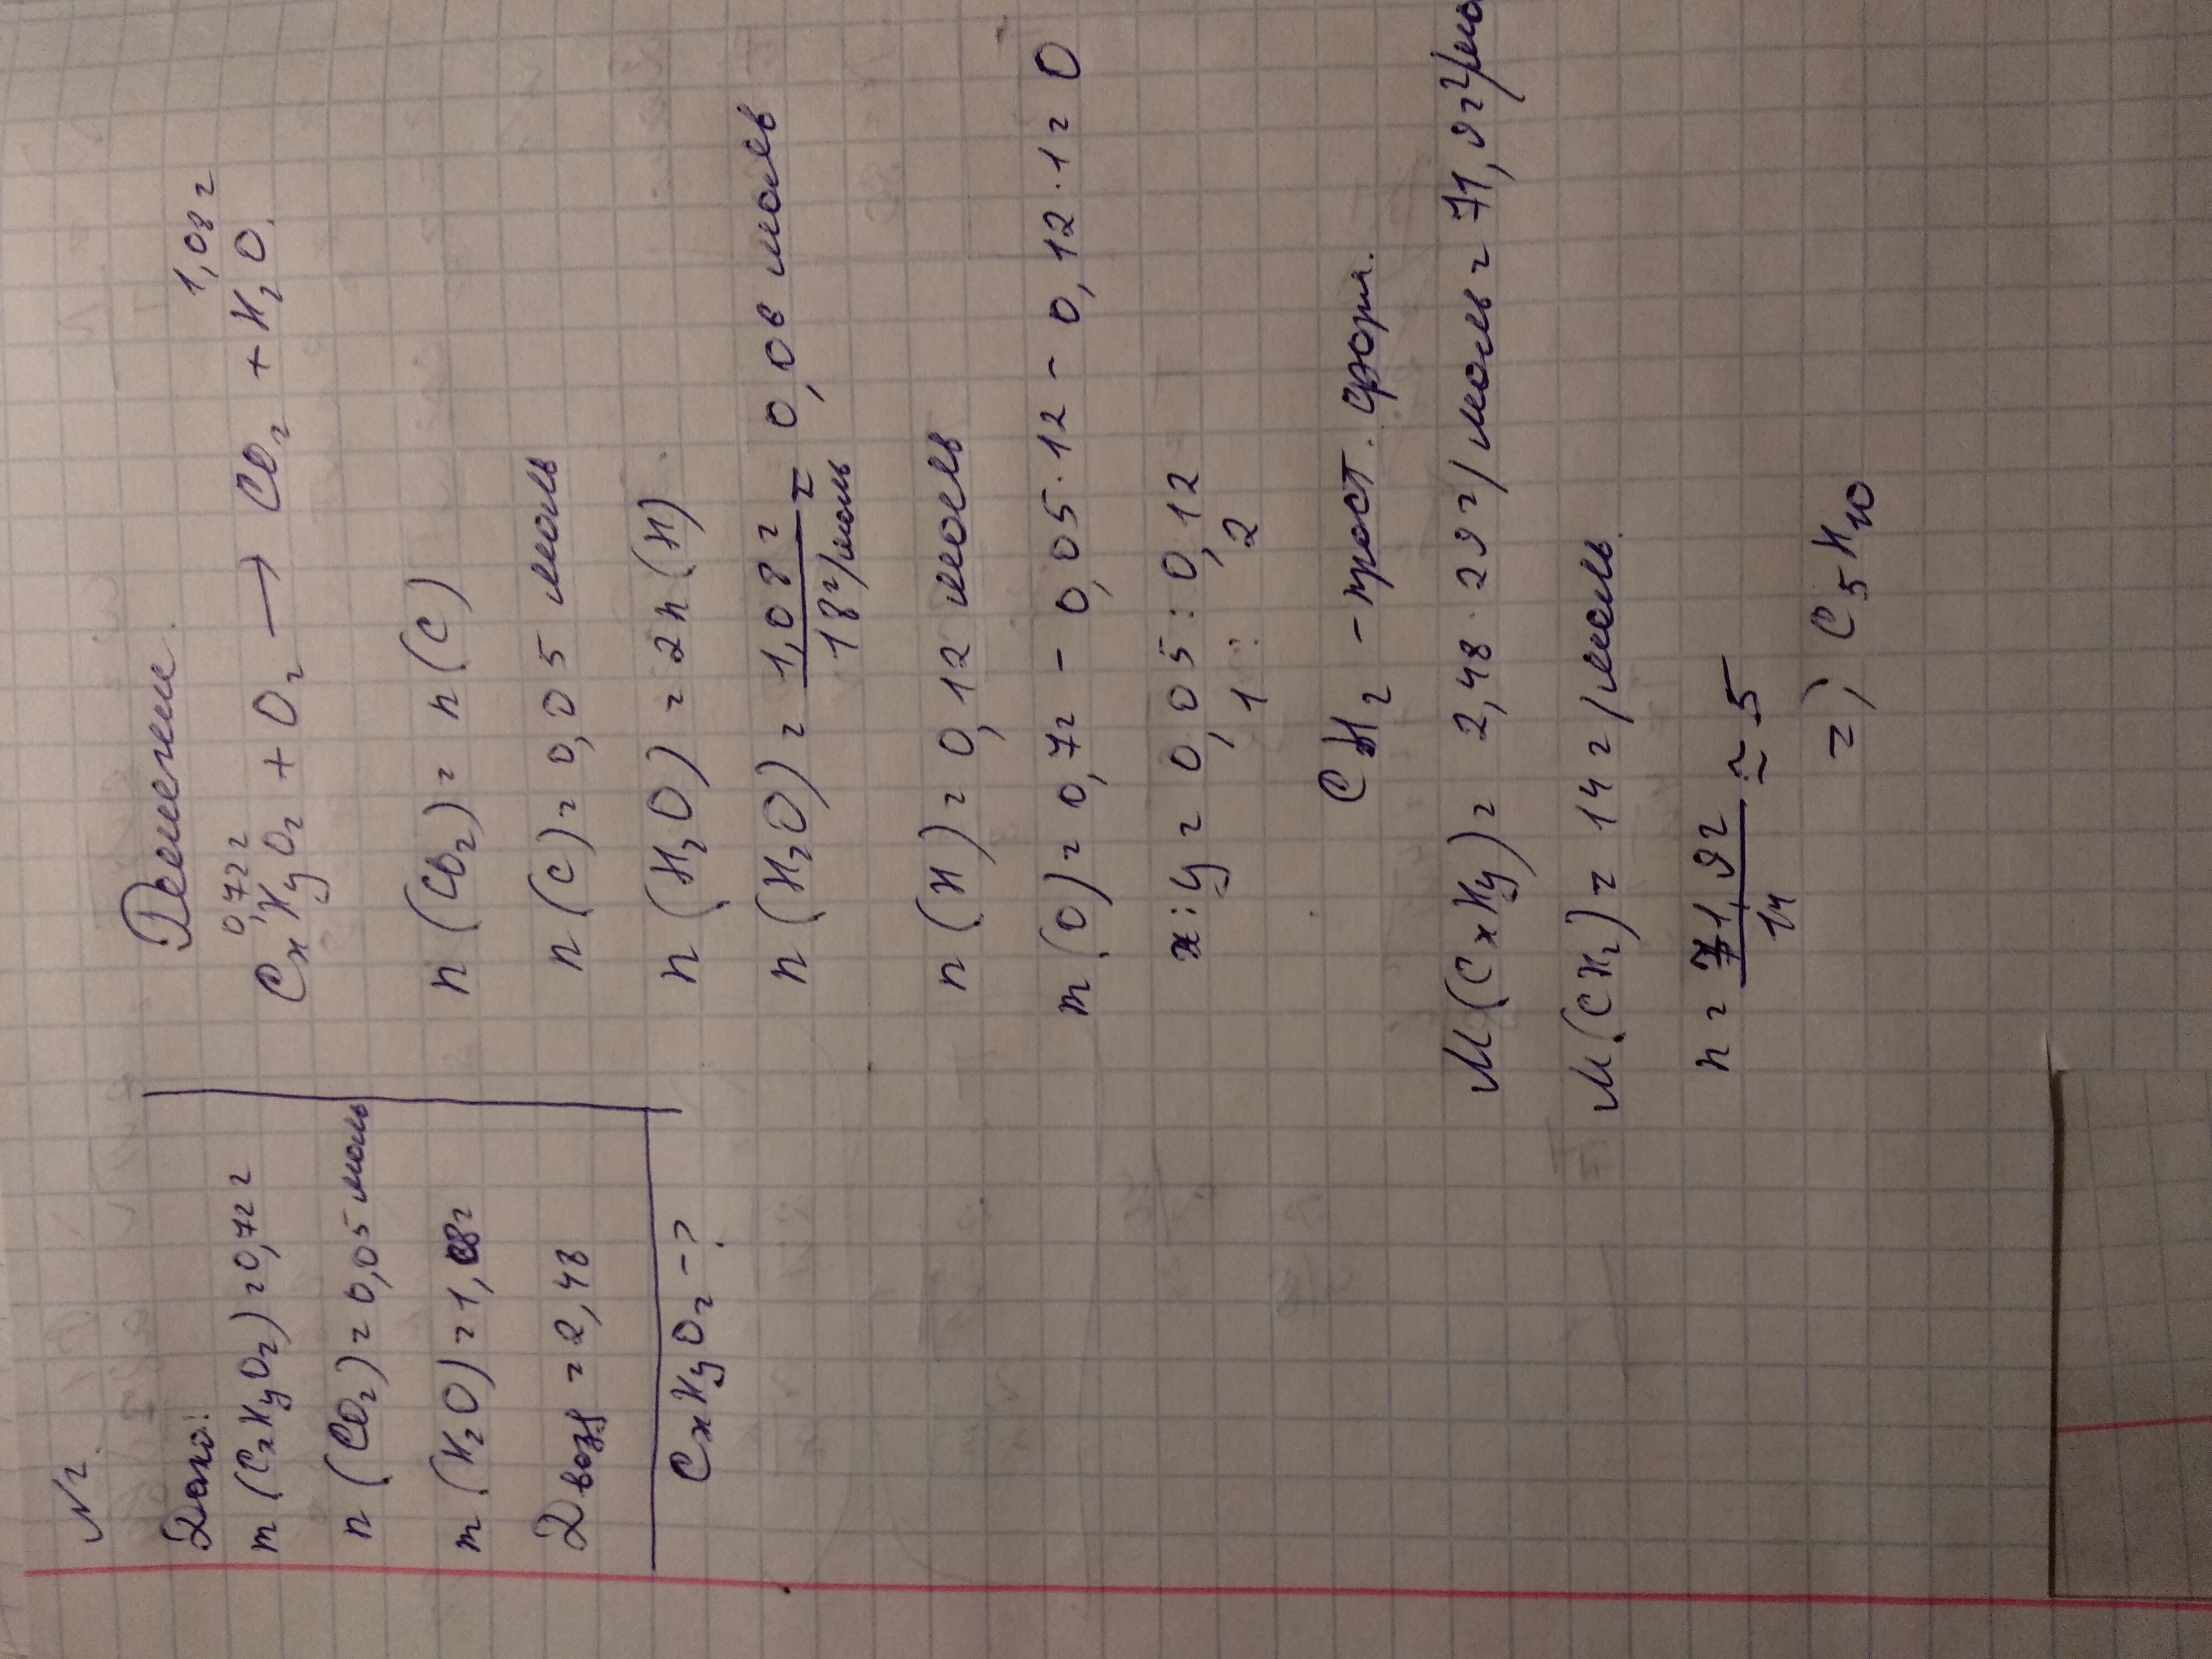 N2.
Дано:
m (CxHyOz) = 0,72 г
n (CO2) = 0,05 моль
m (H2O) = 1,08 г
Dвозд = 2,48
CxHyOz - ?
Решение.
0,72 г 1,08 г
CxHyOz + O2 → CO2 + H2O.
n (CO2) = n (C)
n (C) = 0,05 моль
n (H2O) = 2n (H)
n (H2O) = 1,08 г / 18 г/моль = 0,06 моль
n (H) = 0,12 моль
m (O) = 0,72 - 0,05 · 12 - 0,12 · 1 = 0
x : y = 0,05 : 0,12
1 : 2
CH2 - прост. форм.
M (CxHy) = 2,48 · 29 г/моль = 71,92 г/мо
M (CH2) = 14 г/моль.
n = 71,92 / 14 ≃ 5
=) C5H10